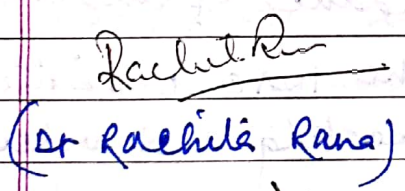 Rachita Rana
(Dr Rachita Rana)